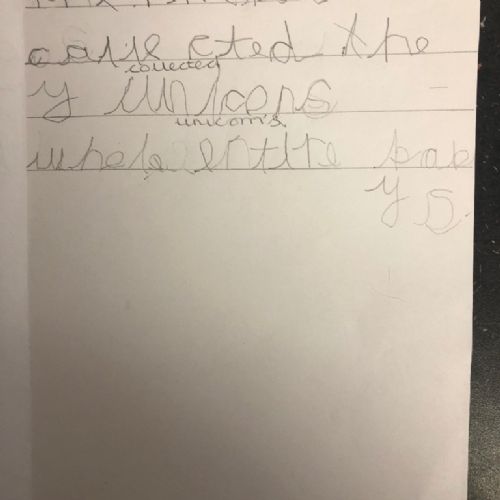 call ected the
collected
y unicons
unicorn's
whole entire bab
y s.